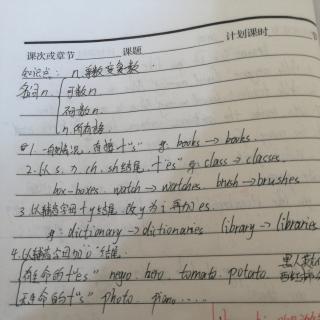 计划课时
课次或章节 课题
知识点: n. 单数变复数
名词n. 可数n.
不可数n.
n. 所有格
1. 一般情况, 直接+"s" eg: books → books.
2. 以 s, x, ch, sh结尾, +"es" eg: class → classes.
box-boxes. watch → watches. brush → brushes
3. 以辅音字母+y结尾, 改y为i再加es.
eg: dictionary → dictionaries library → libraries
4. 以辅音字母加"o"结尾:
有生命的+"es" negro. hero. tomato. potato. 黑人
无生命的+"s" photo. piano......